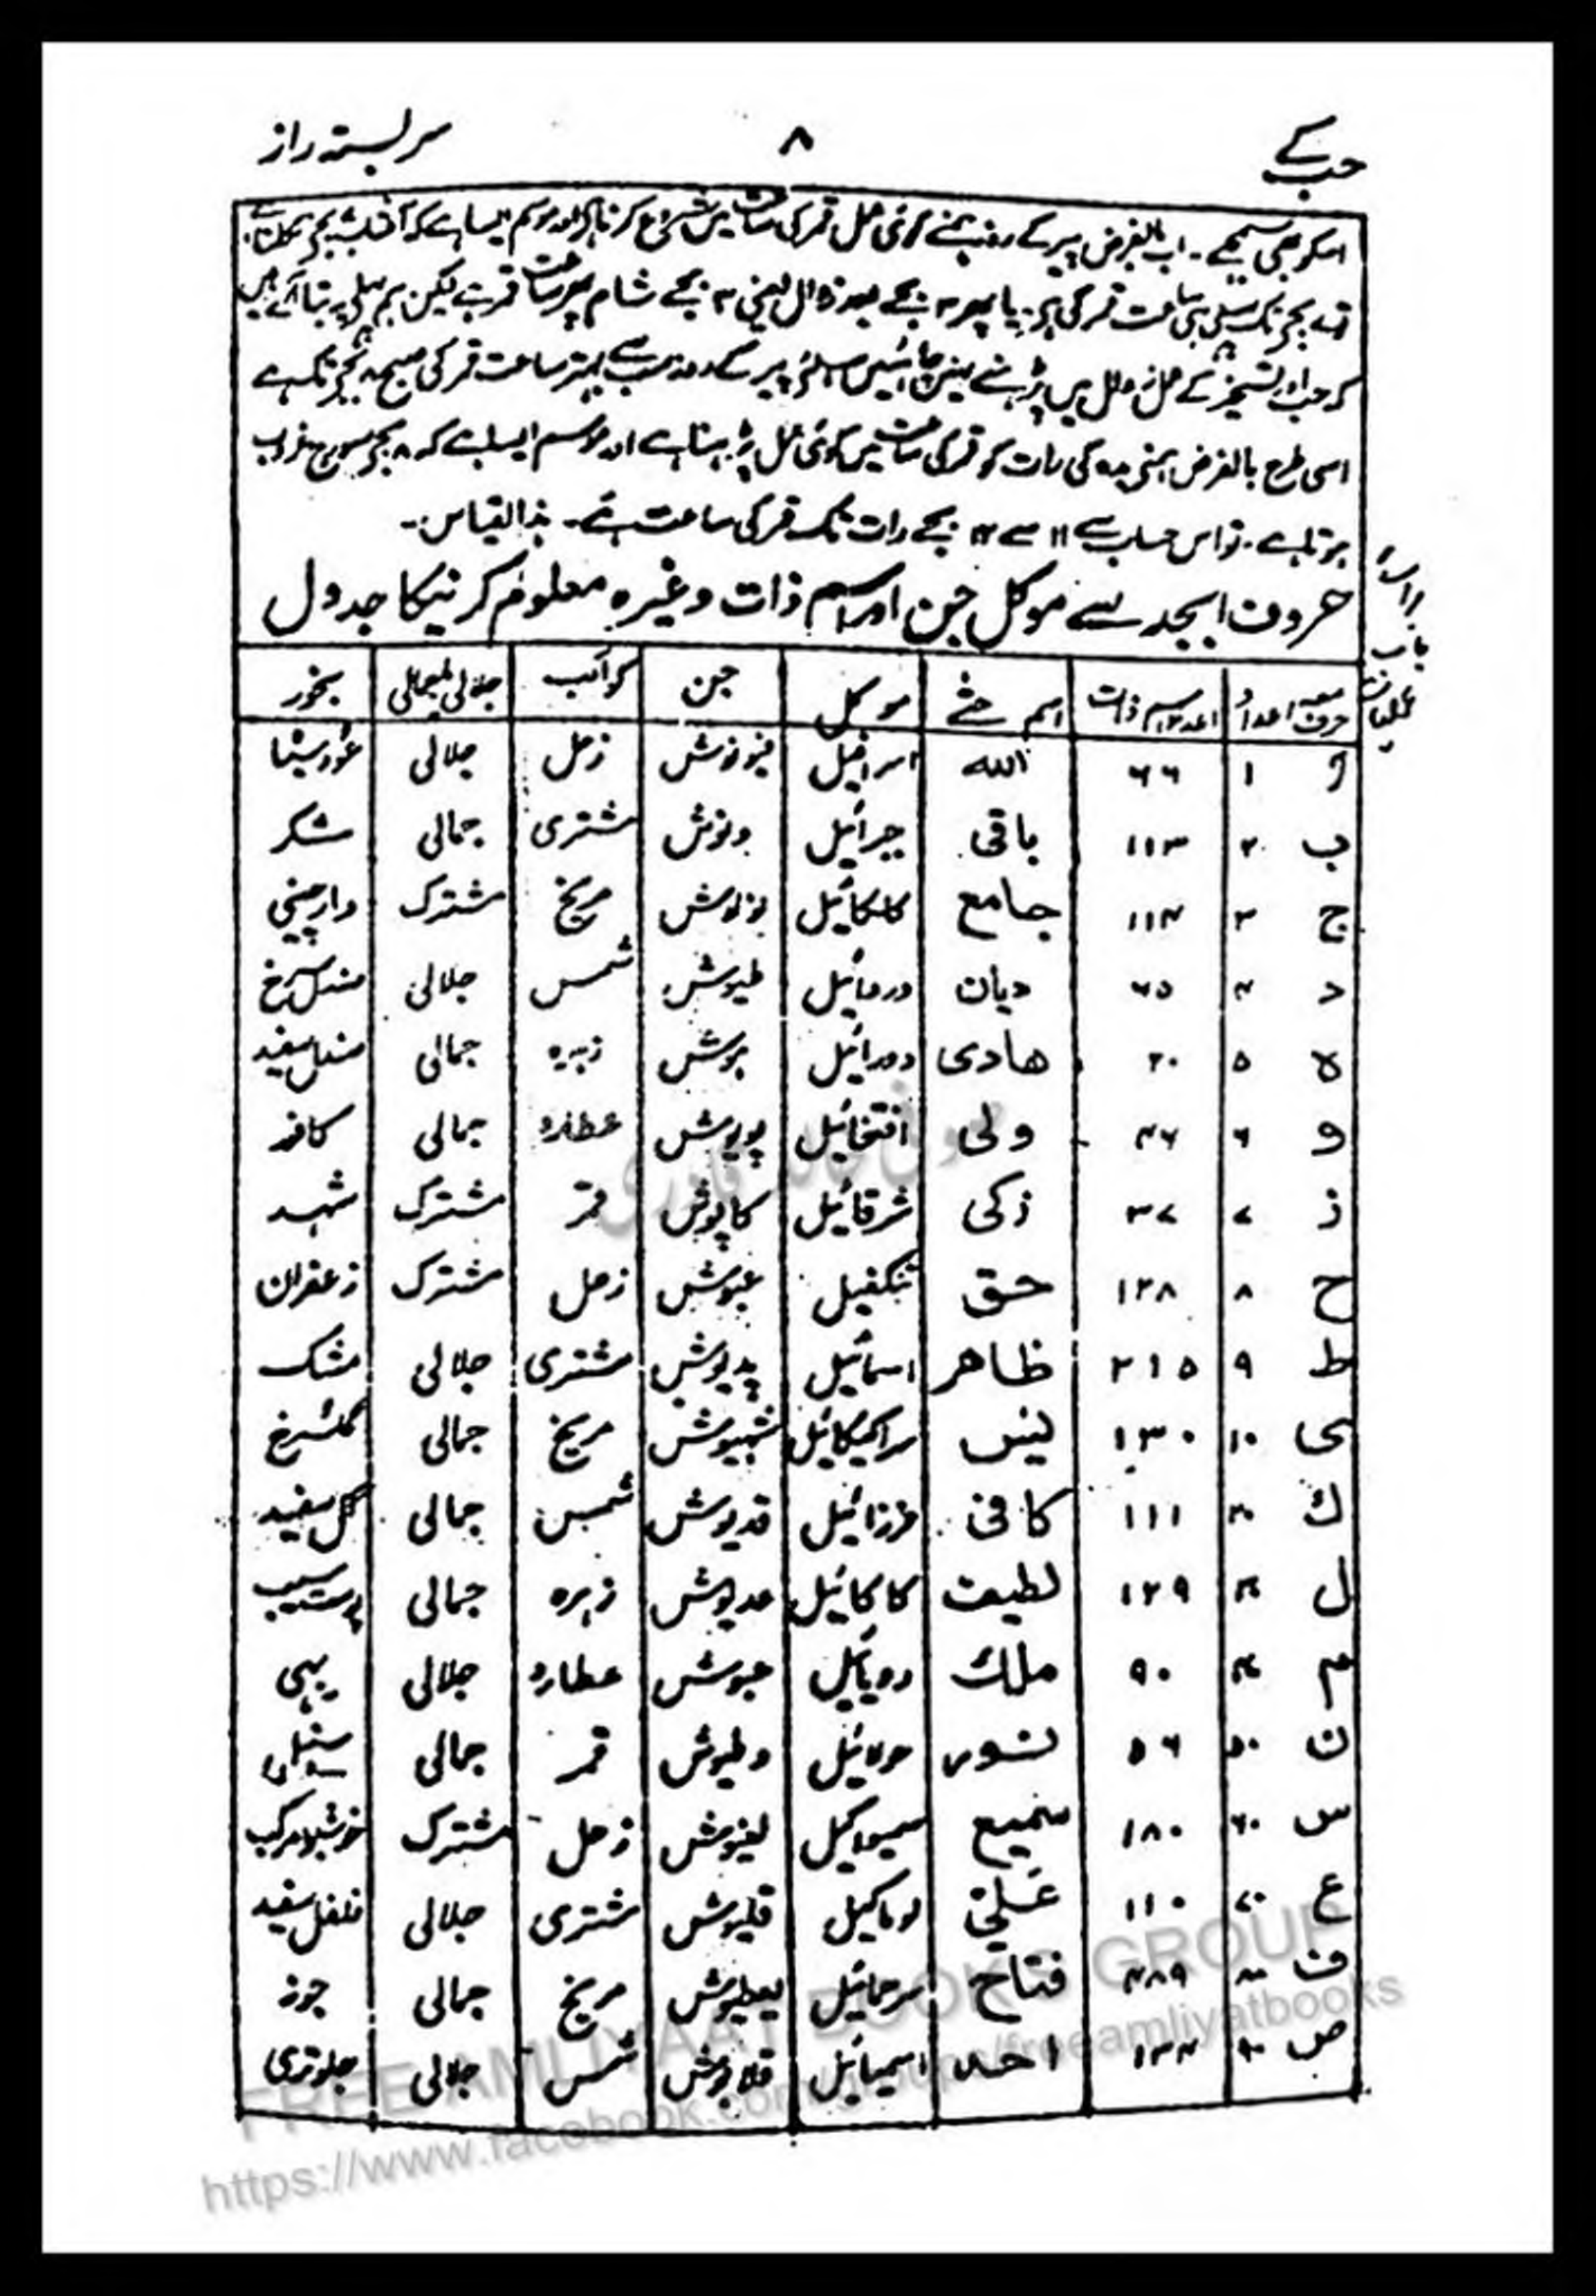 حب کے ۸ سربستہ راز
اسکو بھی سمجھے۔ اب بالفرض پیر کے روز کوئی عمل قمر کی ساعت میں شروع کرنا اور موسم ایسا ہے کہ آفتاب بجے نکلتا ہے
بجے تک پہلی ہی ساعت قمر کی ہے۔ یا پھر ۳ بجے بعد زوال یعنی ۳ بجے شام پھر ساعت قمر ہے لیکن ہم پہلے بتا آئے ہیں
کہ حب اور تسخیر کے عمل زوال میں پڑہنے نہیں چاہئیں اسلئے پیر کے روز سب سے بہتر ساعت قمر کی صبح ۸ بجے تک ہے
اسی طرح بالفرض کی رات کو قمر کی ساعت میں کوئی عمل پڑہنا ہے اور موسم ایسا ہے کہ ۸ بجے سورج غروب
ہوتا ہے۔ تو اس حساب سے ۱۱ سے ۱۲ بجے رات تک قمر کی ساعت ہے۔ ہذا القیاس۔
حروف ابجد سے موکل جن اور اسم ذات وغیرہ معلوم کرنیکا جدول
حرف معہ اعداد اعداد اسم ذات اسم حق موکل جن کواکب جلالی جمالی بخور
ا ۱ ۶۶ الله اسرافیل فیوزش زحل جلالی
ب ۲ ۱۱۳ باقی جبرائیل دنوش مشتری جمالی شکر
ج ۳ ۱۱۴ جامع کلکائیل نولوش مریخ مشترک دارچینی
د ۴ ۶۵ دیان دردائیل طیوش شمس جلالی صندل سرخ
ہ ۵ ۲۰ هادی دورائیل ہوش زہرہ جمالی صندل سفید
و ۶ ۴۶ ولی افتخائیل پویوش عطارد جمالی کافور
ز ۷ ۳۷ زکی شرقائیل کاپوش قمر مشترک شہد
ح ۸ ۱۲۸ حق تنکفیل عیوش زحل مشترک زعفران
ط ۹ ۲۱۵ ظاهر اسمائیل پدیوش مشتری جلالی مشک
ی ۱۰ ۱۳۰ یٰس سراکیکائیل شہبوش مریخ جمالی گلسرخ
ك ۲۰ ۱۱۱ کافی خرزائیل قدیوش شمس جمالی گل سفید
ل ۳۰ ۱۲۹ لطیف کاکائیل عدیوش زہرہ جمالی پوست سیب
م ۴۰ ۹۰ ملك رویائیل جبوش عطارد جلالی بہی
ن ۵۰ ۵۶ نور حولائیل دطیوش قمر جمالی
س ۶۰ ۱۸۰ سمیع سمیواکیل لغیوش زحل مشترک خوشبو مرکب
ع ۷۰ ۱۱۰ علی لوماکیل قلیوش مشتری جلالی فلفل سفید
ف ۸۰ ۴۸۹ فتاح سرحمائیل یعطیوش مریخ جمالی جوز
ص ۹۰ ۱۳۴ اسمیائیل قلاپوش شمس جلالی جلوتری
FREE AMLIYAAT BOOKS GROUP
https://www.facebook.com/groups/freeamliyatbooks